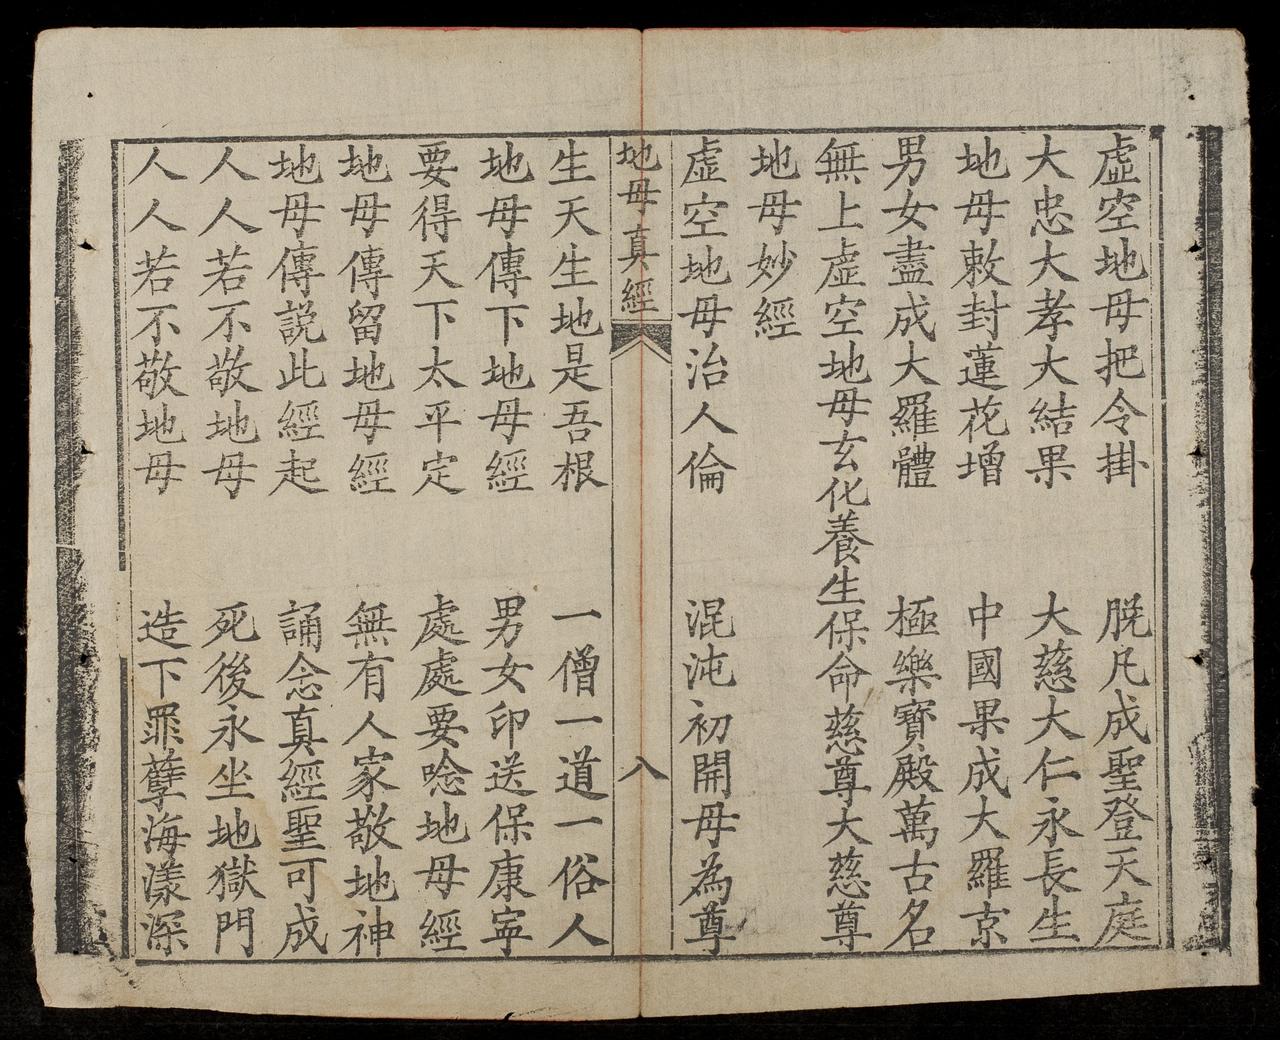 虛空地母把令掛　脫凡成聖登天庭
大忠大孝大結果　大慈大仁永長生
地母敕封蓮花增　中國果成大羅京
男女盡成大羅體　極樂寶殿萬古名
無上虛空地母玄化養生保命慈尊大慈尊
地母妙經
虛空地母治人倫　混沌初開母為尊
地母真經　八
生天生地是吾根　一僧一道一俗人
地母傳下地母經　男女印送保康寧
要得天下太平定　處處要唸地母經
地母傳留地母經　無有人家敬地神
地母傳説此經起　誦念真經聖可成
人人若不敬地母　死後永坐地獄門
人人若不敬地母　造下罪孽海漾深